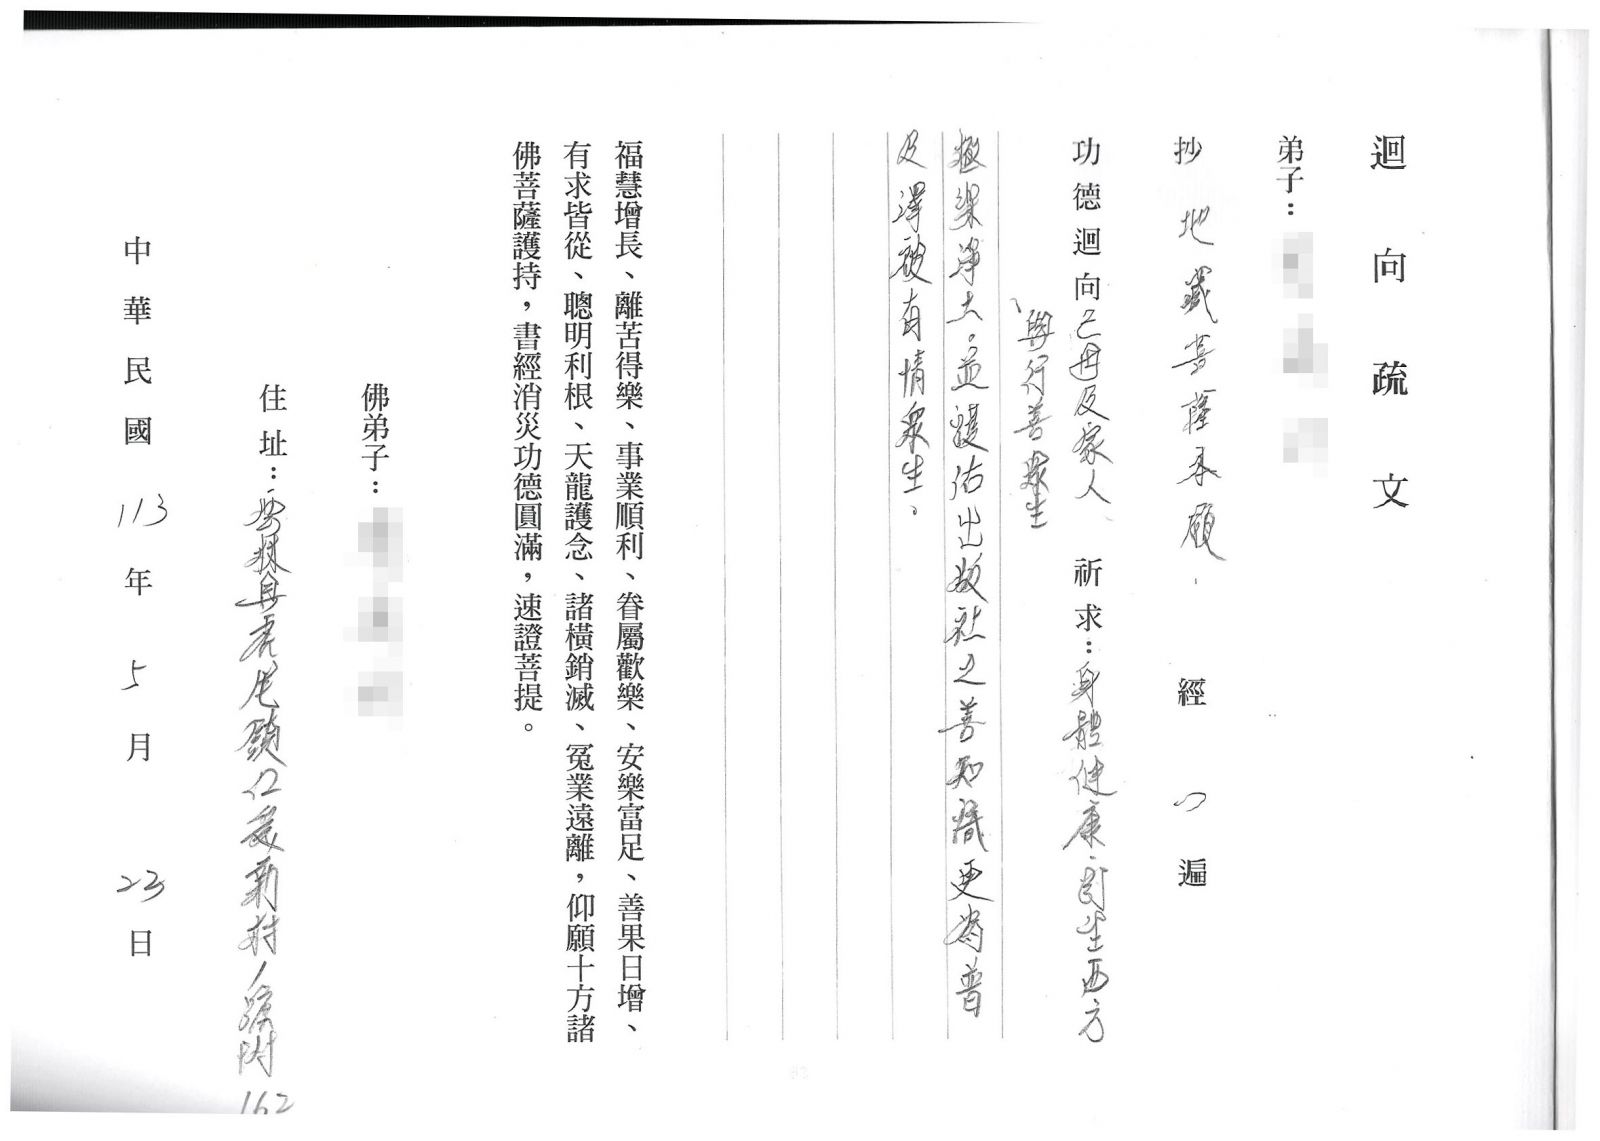 迴向疏文
弟子：
抄 地藏菩薩本願 經 遍
功德迴向 亡母及家人 祈求：身體健康，往生西方
與行善眾生
極樂淨土。並護佑出版社之善知識更為普
及澤被有情眾生。
福慧增長、離苦得樂、事業順利、眷屬歡樂、安樂富足、善果日增、
有求皆從、聰明利根、天龍護念、諸橫銷滅、冤業遠離，仰願十方諸
佛菩薩護持，書經消災功德圓滿，速證菩提。
佛弟子：
住址：雲林縣虎尾鎮 新村1號附
162
中華民國 113 年 5 月 23 日